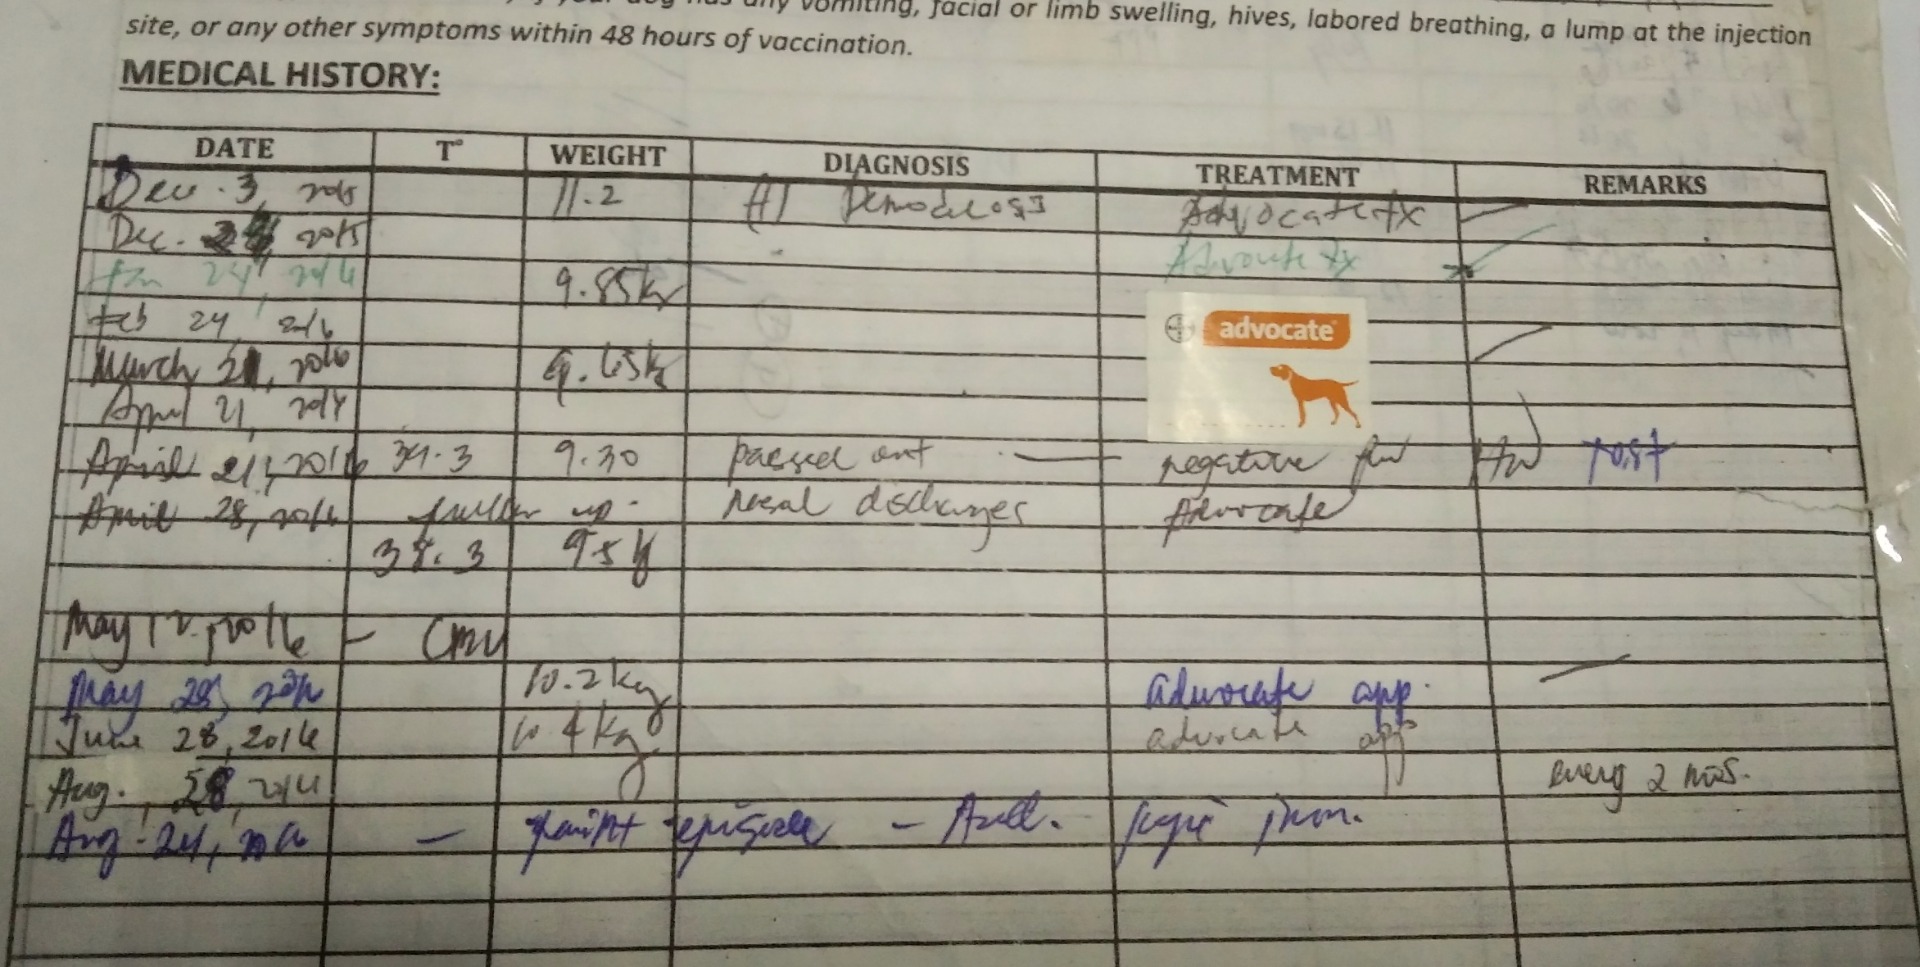 dog has any vomiting, facial or limb swelling, hives, labored breathing, a lump at the injection
site, or any other symptoms within 48 hours of vaccination.
MEDICAL HISTORY:
DATE T° WEIGHT DIAGNOSIS TREATMENT REMARKS
Dec. 3, 2015 11.2 Demodicosis Advocate tx
Dec. 2015
Jan 24, 2016 9.85kg Advocate tx
Feb 24, 2016
advocate
March 21, 2016 9.65kg
April 21,
April 21, 2016 9.30 passed out negative for HW test
April 28, 2016 follow up nasal discharges Advocate
38.3 9.5 kg
May 12, 2016 -
May 28, 2016 10.2kg advocate app.
June 28, 2016 10.4kg advocate app
Aug. every 2 mos.
Aug. 24, 2016 - faint episode -